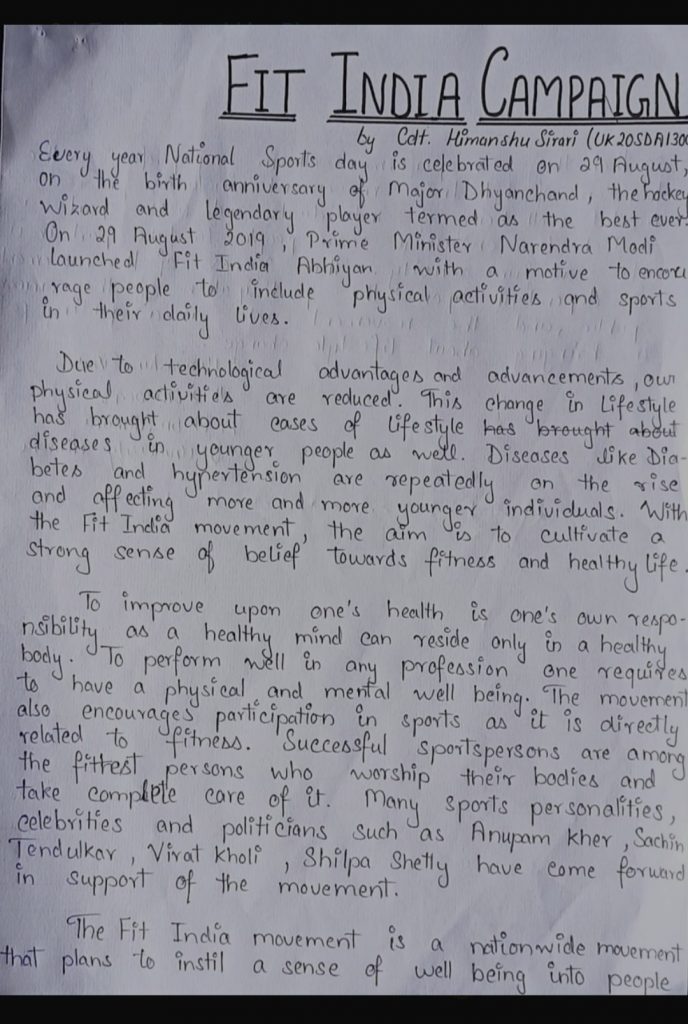 FIT INDIA CAMPAIGN
by Cdt. Himanshu Sirari (UK20SDA130
Every year National Sports day is celebrated on 29 August,
on the birth anniversary of Major Dhyanchand, the hockey
Wizard and legendary player termed as the best ever.
On 29 August 2019, Prime Minister Narendra Modi
launched Fit India Abhiyan with a motive to encou
rage people to include physical activities and sports
in their daily lives.
Due to technological advantages and advancements, our
physical activities are reduced. This change in Lifestyle
has brought about cases of lifestyle has brought about
diseases in younger people as well. Diseases like Dia-
betes and hypertension are repeatedly on the rise
and affecting more and more younger individuals. With
the Fit India movement, the aim is to cultivate a
strong sense of belief towards fitness and healthy life.
To improve upon one's health is one's own respo-
nsibility as a healthy mind can reside only in a healthy
body. To perform well in any profession one requires
to have a physical and mental well being. The movement
also encourages participation in sports as it is directly
related to fitness. Successful sportspersons are among
the fittest persons who worship their bodies and
take complete care of it. Many sports personalities,
celebrities and politicians such as Anupam kher, Sachin
Tendulkar, Virat Kholi, Shilpa Shetty have come forward
in support of the movement.
The Fit India movement is a nationwide movement
that plans to instil a sense of well being into people